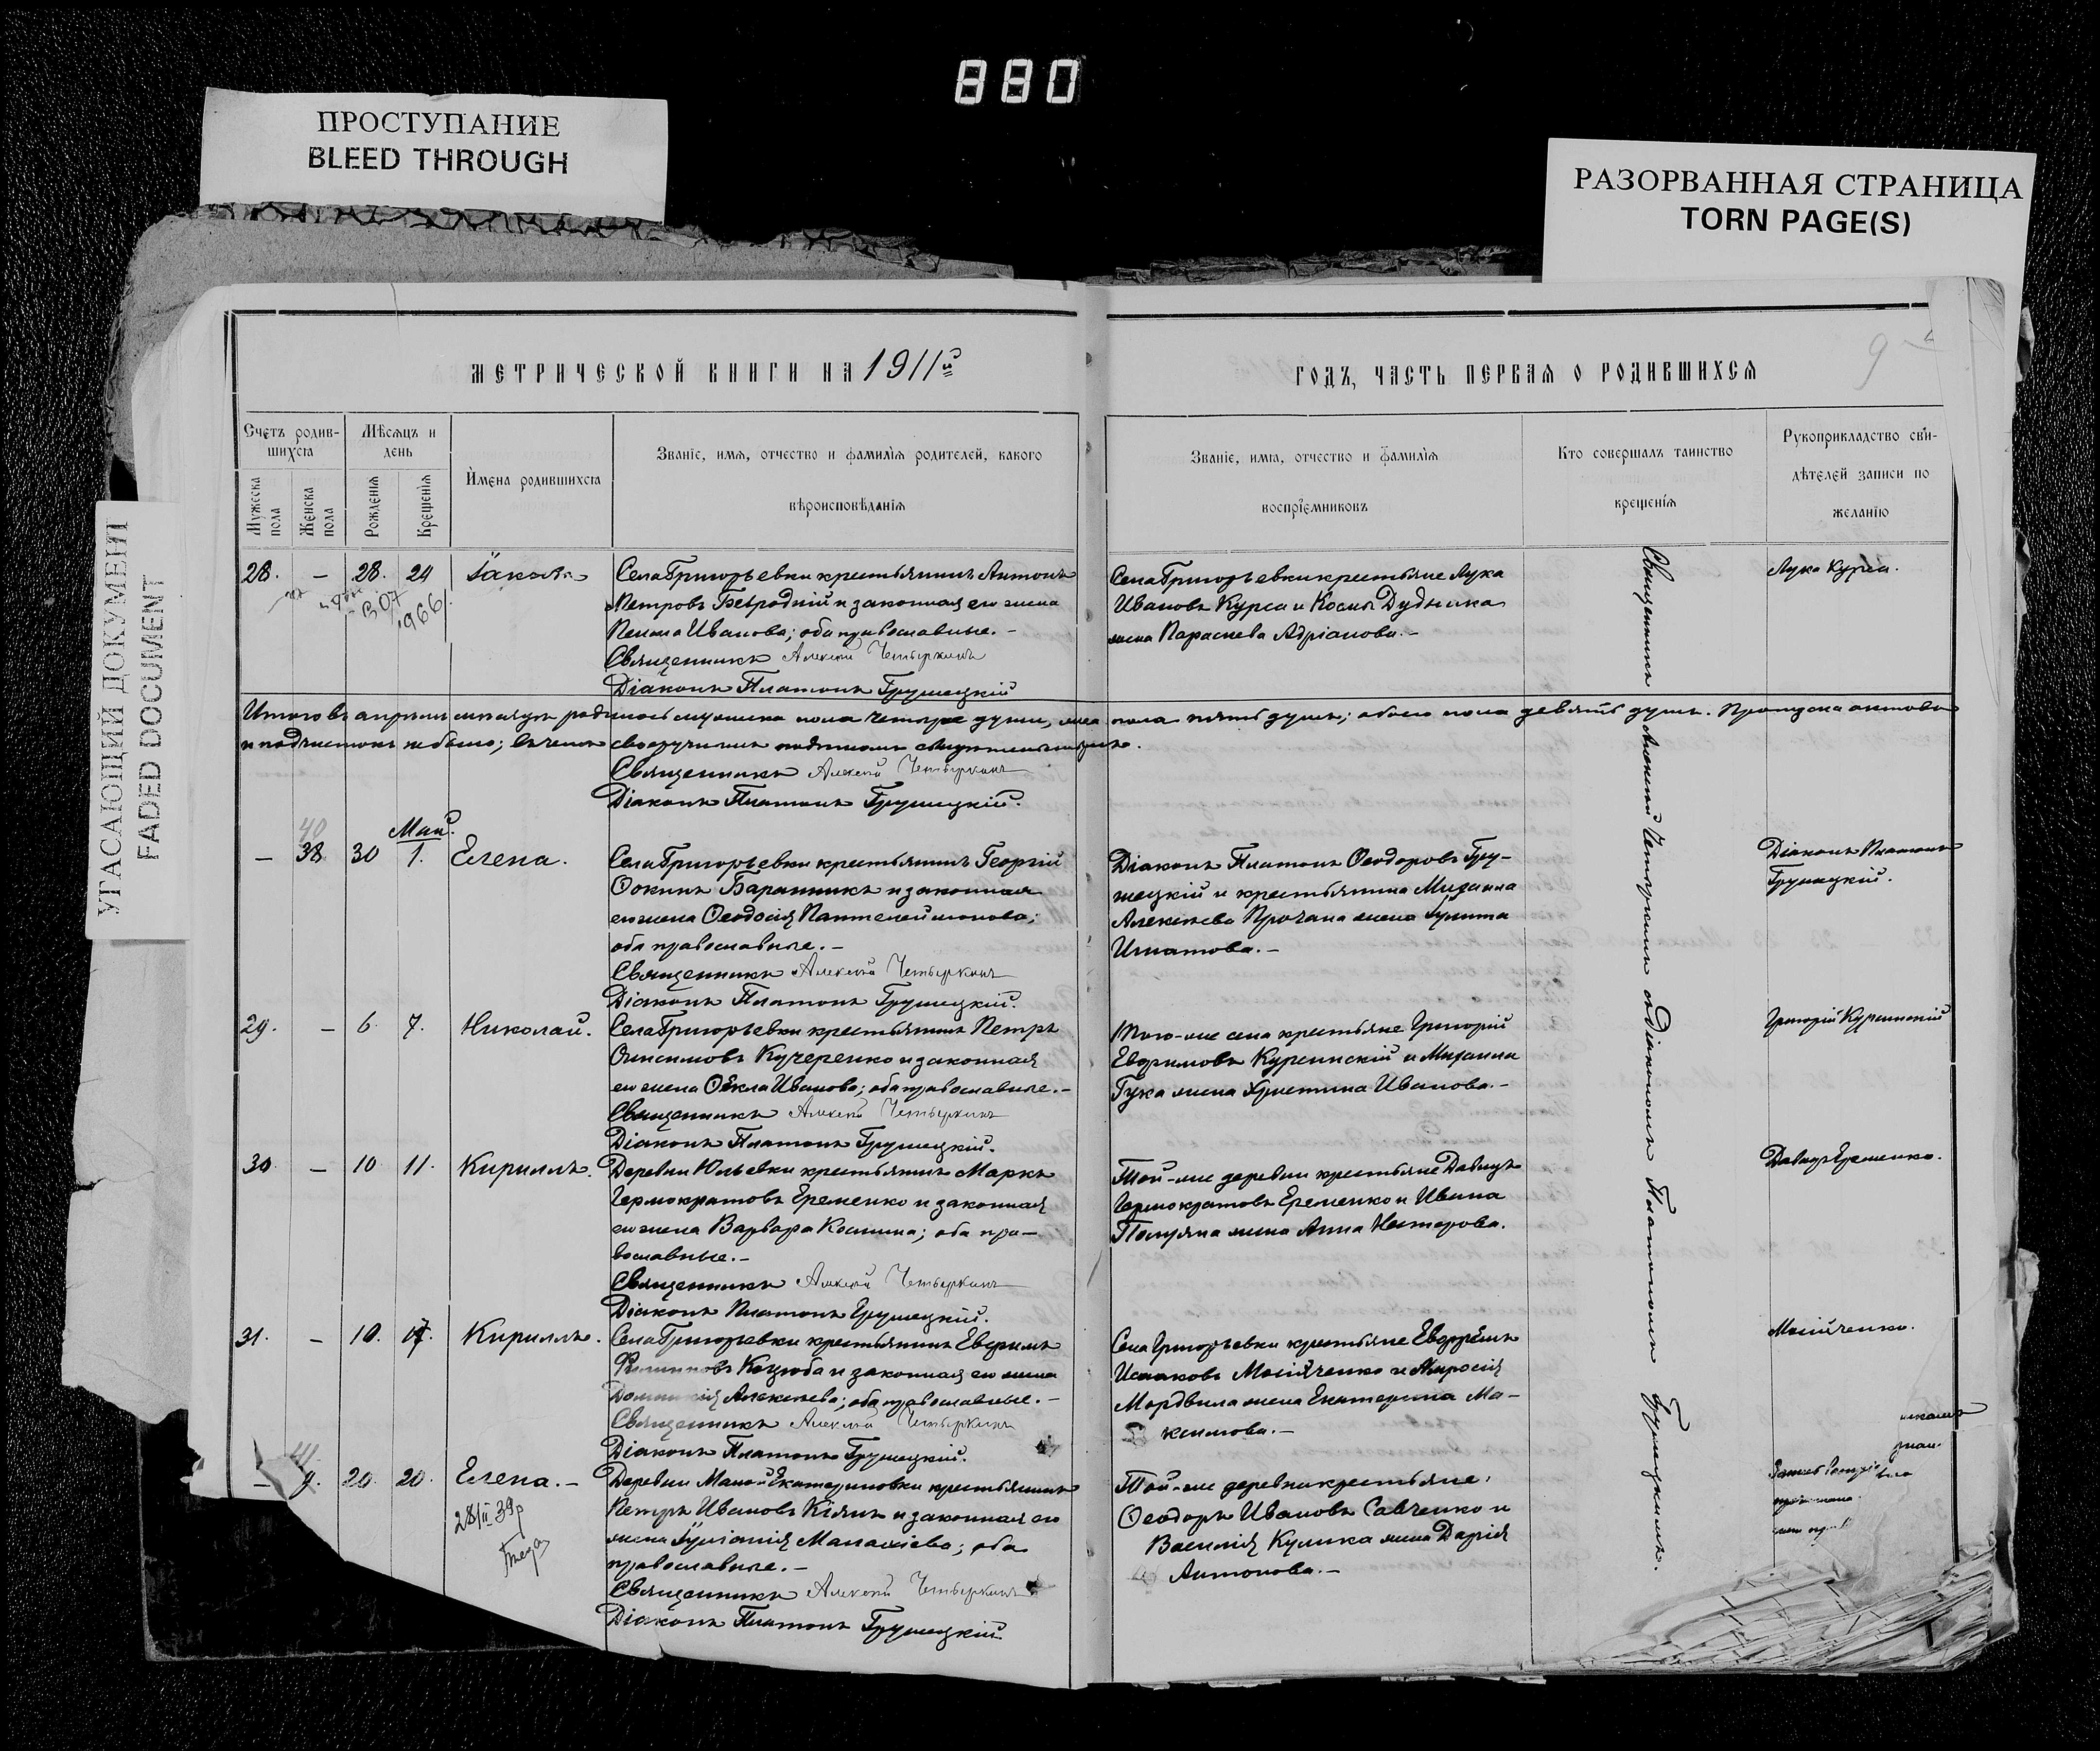 880
ПРОСТУПАНИЕ
BLEED THROUGH
РАЗОРВАННАЯ СТРАНИЦА
TORN PAGE(S)
УГАСАЮЩИЙ ДОКУМЕНТ
FADED DOCUMENT
9
МЕТРИЧЕСКОЙ КНИГИ НА 1911й
ГОДЪ, ЧАСТЬ ПЕРВАЯ О РОДИВШИХСЯ
Счетъ родив-
шихся
Мужеска
пола
Женска
пола
Мѣсяцъ и
день
Рожденія
Крещенія
Имена родившихся
Званіе, имя, отчество и фамилія родителей, какого
вѣроисповѣданія
Званіе, имя, отчество и фамилія
воспріемниковъ
Кто совершалъ таинство
крещенія
Рукоприкладство сви-
дѣтелей записи по
желанію
28. – 28. 24 Іаковъ
1966
Села Григорьевки крестьянинъ Антонъ
Петровъ Безродній и законная его жена
Иванова; оба православные. –
Священникъ Алексѣй Четыркинъ
Діаконъ Платонъ Грушецкій
Села Григорьевки крестьяне Лука
Ивановъ Курса и Космы Дудника
жена Параскева Адріанова. –
Лука Курса.
Итого въ апрѣлѣ мѣсяцѣ родилось мужеска пола четыре души, жен. пола пять душъ; обоего пола девять душъ. Пропуска актовъ
и подчистокъ не было; въ чемъ своеручнымъ подписомъ свидѣтельствуемъ.
Священникъ Алексѣй Четыркинъ
Діаконъ Платонъ Грушецкій.
Май.
40
– 38 30 1. Елена.
Села Григорьевки крестьянинъ Георгій
Ѳокинъ Баранникъ и законная
его жена Ѳеодосія Пантелеймонова;
оба православные. –
Священникъ Алексѣй Четыркинъ
Діаконъ Платонъ Грушецкій.
Діаконъ Платонъ Ѳеодоровъ Гру-
шецкій и крестьянина Михаила
Алексѣева Прочана жена Іулитта
Игнатова. –
Діаконъ Платонъ
Грушецкій.
29. – 6. 7. Николай.
Села Григорьевки крестьянинъ Петръ
Онисимовъ Кучеренко и законная
его жена Ѳекла Иванова; оба православные. –
Священникъ Алексѣй Четыркинъ
Діаконъ Платонъ Грушецкій.
Того-же села крестьяне Григорій
Евфимовъ Курсинскій и Михаила
Гужа жена Христина Иванова. –
Григорій Курсинскій
30. – 10 11. Кириллъ.
Деревни Юльевки крестьянинъ Маркъ
Гермократовъ Еременко и законная
его жена Варвара Космина; оба пра-
вославные. –
Священникъ Алексѣй Четыркинъ
Діаконъ Платонъ Грушецкій.
Той-же деревни крестьяне Давидъ
Гермократовъ Еременко и Ивана
жена Анна Несторова.
Давидъ Еременко.
31. – 10. 17. Кириллъ.
Села Григорьевки крестьянинъ Евфимъ
Козюба и законная его жена
Алексѣева; оба православные. –
Священникъ Алексѣй Четыркинъ
Діаконъ Платонъ Грушецкій.
Села Григорьевки крестьяне Евфрѣмъ
Исааковъ Мосійченко и Амросія
Мордвила жена Екатерина Ма-
ксимова. –
Мосійченко.
41
– 9. 20. 20. Елена. –
28/II 39р
Деревни Малой Екатериновки крестьянинъ
Петръ Ивановъ Кіянъ и законная его
жена Іуліанія Малахіева; оба
православные. –
Священникъ Алексѣй Четыркинъ
Діаконъ Платонъ Грушецкій
Той-же деревни крестьяне:
Ѳеодоръ Ивановъ Савченко и
Василія Кулика жена Дарія
Антонова. –
Священникъ Алексѣй Четыркинъ съ Діакономъ Платономъ Грушецкимъ.